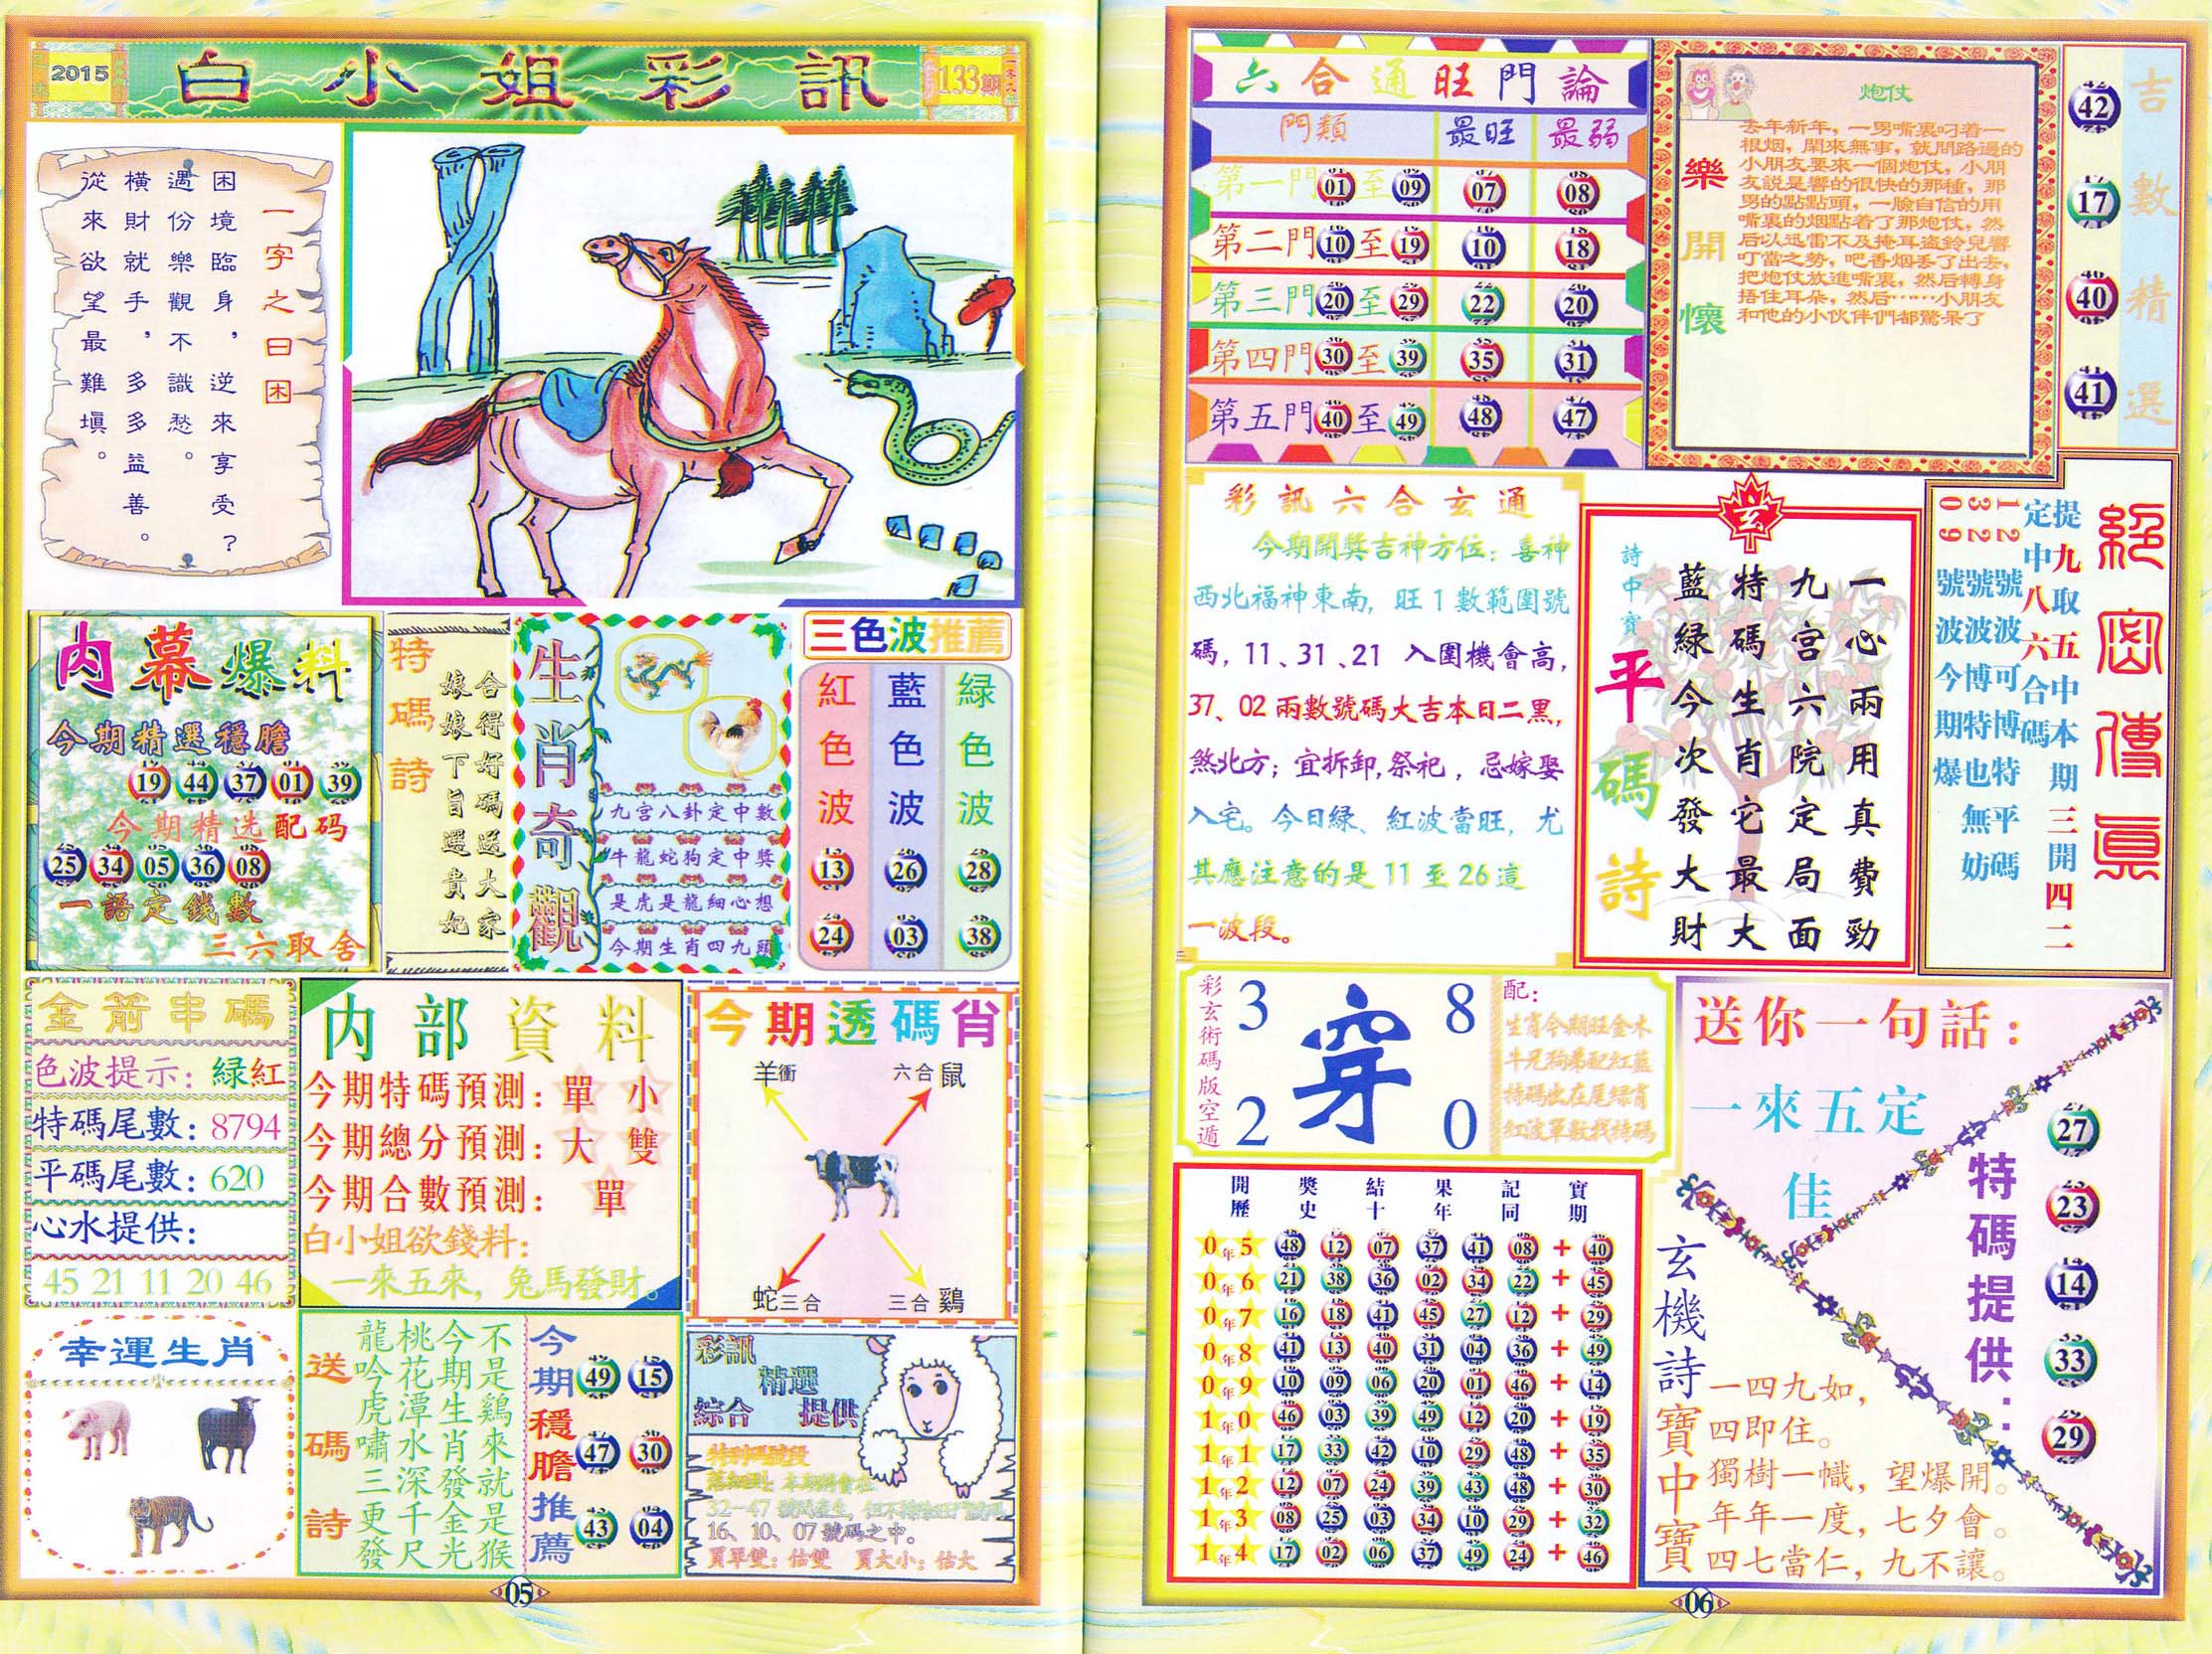 2015
白小姐彩訊
133期
一字之曰困
困境臨身，逆來享受？
遇份樂觀不識愁。
橫財就手，多多益善。
從來欲望最難填。
内幕爆料
今期精選穩膽
19 44 37 01 39
今期精选配码
25 34 05 36 08
一語定錢數
三六取舍
特碼詩
合得好碼送大家
娘娘下旨選貴妃
生肖奇觀
九宫八卦定中數
牛龍蛇狗定中獎
是虎是龍細心想
今期生肖四九頭
三色波推薦
紅色波 藍色波 緑色波
13 26 28
24 03 38
金箭串碼
色波提示：緑紅
特碼尾數：8794
平碼尾數：620
心水提供：
45 21 11 20 46
内部資料
今期特碼預測：單 小
今期總分預測：大 雙
今期合數預測： 單
白小姐欲錢料：
一來五來，兔馬發財。
今期透碼肖
羊衝 六合鼠
蛇三合 三合鷄
幸運生肖
送碼詩
不是鷄來就是猴
今期生肖發金光
桃花潭水深千尺
龍吟虎嘯三更發
今期穩膽推薦
49 15
47 30
43 04
彩訊
精選
綜合 提供
特碼號段
本期將會在
32－47 號間產生，但不排除旺
16、10、07 號碼之中。
買單雙：估雙 買大小：估大
05
六合通旺門論
門類 最旺 最弱
第一門01至09 07 08
第二門10至19 10 18
第三門20至29 22 20
第四門30至39 35 31
第五門40至49 48 47
樂開懷
炮仗
去年新年，一男嘴裏叼着一
根烟，閑來無事，就問路過的
小朋友要來一個炮仗，小朋
友説是響的很快的那種，那
男的點點頭，一臉自信的用
嘴裏的烟點着了那炮仗，然
后以迅雷不及掩耳盗鈴兒響
叮當之勢，吧香烟丢了出去，
把炮仗放進嘴裏，然后轉身
捂住耳朵，然后……小朋友
和他的小伙伴們都驚呆了
吉數精選
42
17
40
41
彩訊六合玄通
今期開獎吉神方位：喜神
西北福神東南，旺1數範圍號
碼，11、31、21 入圍機會高，
37、02 兩數號碼大吉本日二黑，
煞北方；宜拆卸,祭祀，忌嫁娶
入宅。今日緑、紅波當旺，尤
其應注意的是 11 至 26 這
一波段。
玄
詩中寳
平碼詩
一心兩用真費勁
九宫六院定局面
特碼生肖它最大
藍緑今次發大財
絕密傳真
提九取五中本期三開四二
定中八六合碼
12號波可博特平碼
32號波博特也無妨
09號波今期爆
彩玄術碼版空遁
3 8
穿
2 0
配：
生肖今期旺金木
牛兔狗鷄配紅藍
特碼出在尾緑肖
紅波單數找特碼
開獎結果記寳
歷史十年同期
05年 48 12 07 37 41 08 + 40
06年 21 38 36 02 34 22 + 45
07年 16 18 41 45 27 12 + 29
08年 41 13 40 31 04 36 + 49
09年 10 09 06 20 01 46 + 14
10年 46 03 39 49 12 20 + 19
11年 17 33 42 10 29 48 + 35
12年 12 07 24 39 43 48 + 30
13年 08 25 03 34 10 29 + 32
14年 17 02 06 37 49 24 + 46
送你一句話：
一來五定
佳
特碼提供：
27
23
14
33
29
玄機詩寶中寶
一四九如，
四即住。
獨樹一幟，望爆開。
年年一度，七夕會。
四七當仁，九不讓。
06